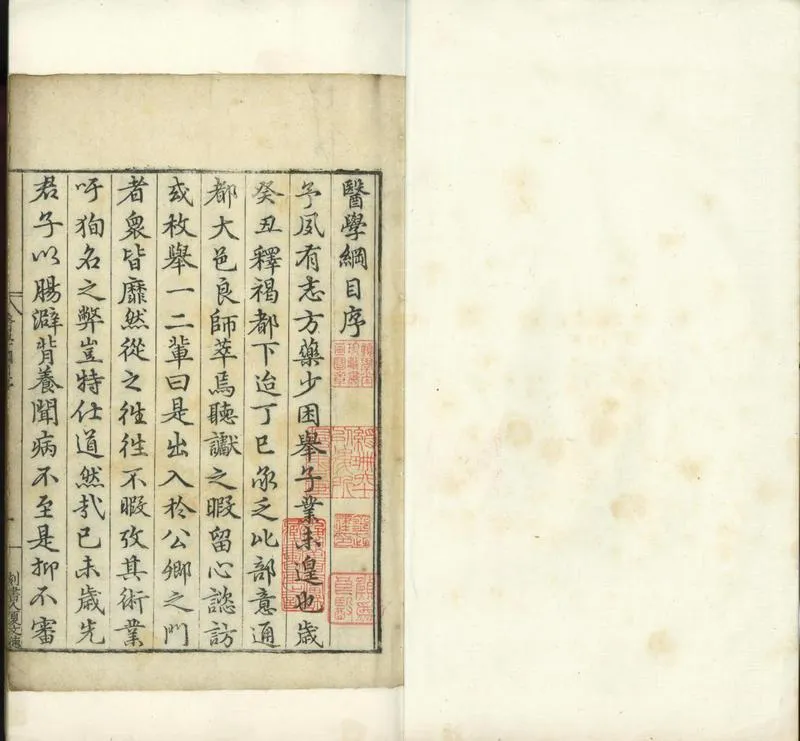 醫學綱目序
予夙有志方藥少困舉子業未遑也歲
癸丑釋褐都下迨丁巳承乏比部意通
都大邑良師萃焉聽讞之暇留心諮訪
或枚舉一二輩曰是出入於公卿之門
者衆皆靡然從之徃徃不暇攷其術業
吁狥名之弊豈特仕道然㢤已未歲先
君子以腸澼背養聞病不至是抑不審
刻書人夏文德